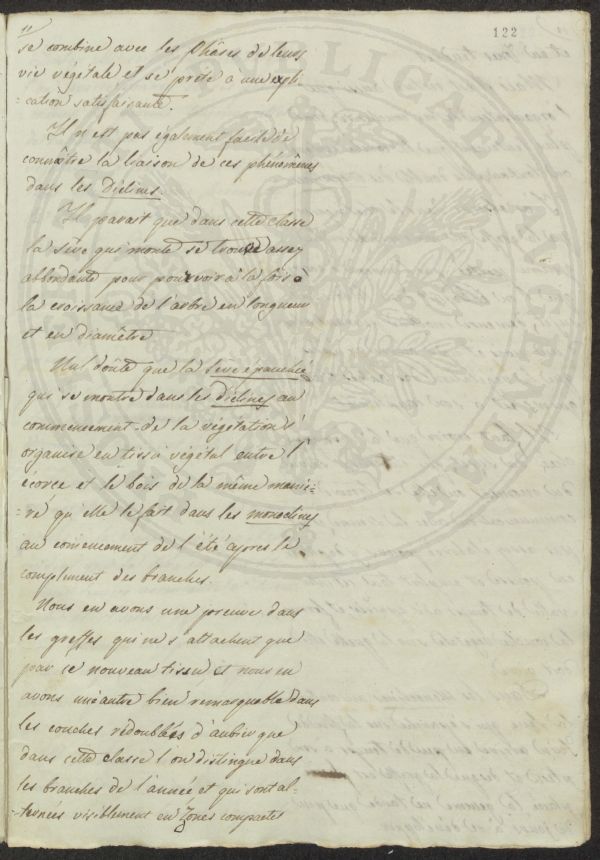 11
122
se combine avec les Phâses de leur
vie végétale et se prete a une expli-
-cation satisfaisante.
Il n'est pas également facile de
connaître la liaison de ces phénomènes
dans les Diclins.
Il parait que dans cette classe
la séve qui monte se trouve assez
abbondante pour pourvoir à la fois à
la croissance de l'arbre en longueur
et en diamêtre
Nul doûte que la Séve épanchée
qui se montre dans les diclines au
commencement de la végétation s'
organise en tissù végétal entre l'
écorce et le bois de la même maniè-
-re qu'elle le fait dans les monoclins
au comencement de l'été apres le
complement des branches.
Nous en avons une preuve dans
les greffes qui ne s'attachent que
par ce nouveau tissu et nous en
avons une autre bien remarquable dans
les couches redoublées d'aubier que
dans cette classe l'on distingue dans
les branches de l'année et qui sont al-
-ternées visiblement en Zones compactes